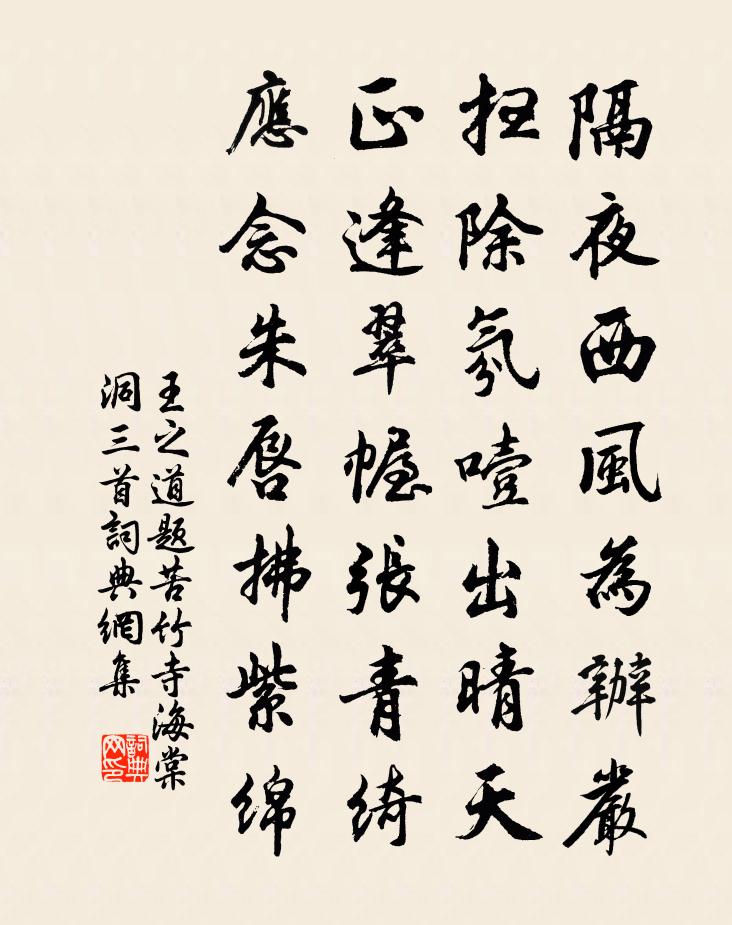 隔夜西風為辦嚴
扫除氛噎出晴天
正逢翠幄張青綺
應念朱唇拂紫綿
王之道题苦竹寺海棠
洞三首詞典網集
詞典网印